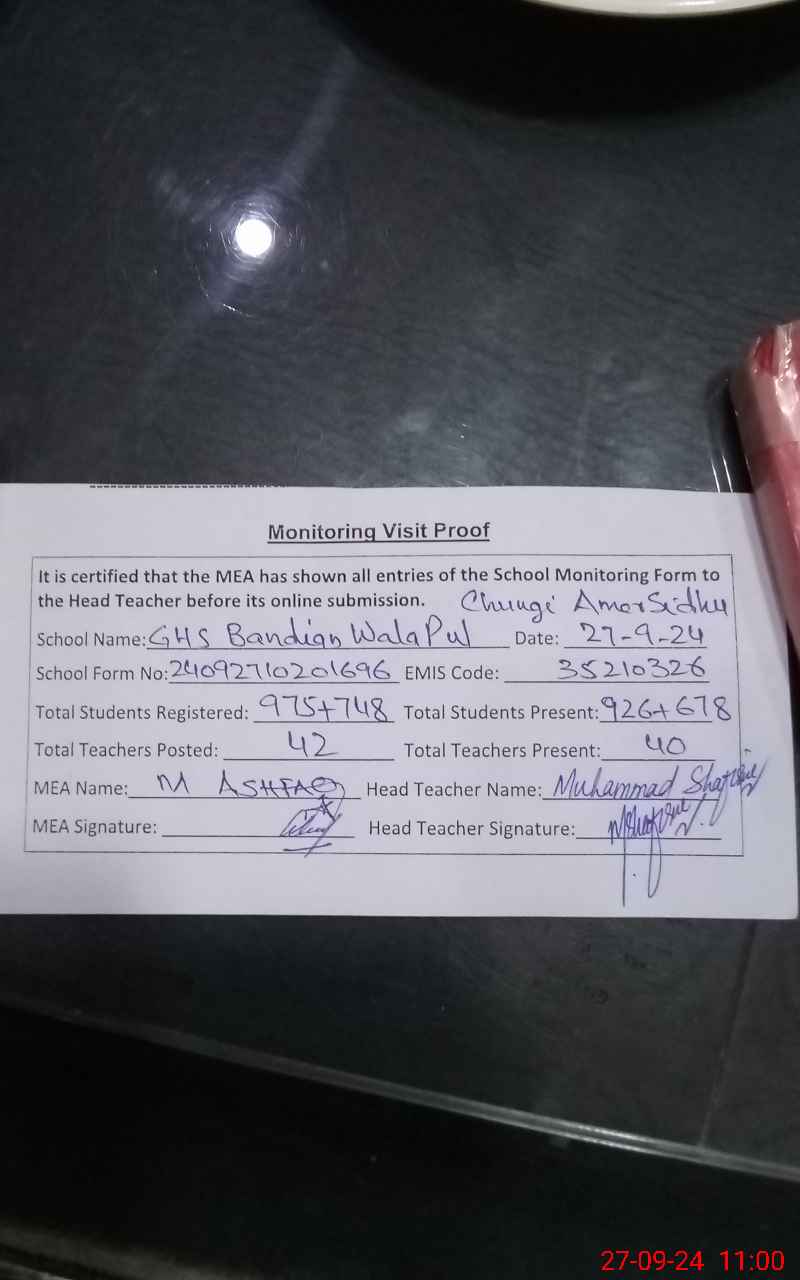 Monitoring Visit Proof
It is certified that the MEA has shown all entries of the School Monitoring Form to
the Head Teacher before its online submission. Chungi AmerSidhu
School Name: GHS Bandian Wala Pul Date: 27-9-24
School Form No: 24092710201696 EMIS Code: 35210326
Total Students Registered: 975+748 Total Students Present: 926+678
Total Teachers Posted: 42 Total Teachers Present: 40
MEA Name: M ASHFAQ Head Teacher Name: Muhammad
MEA Signature: Head Teacher Signature:
27-09-24 11:00